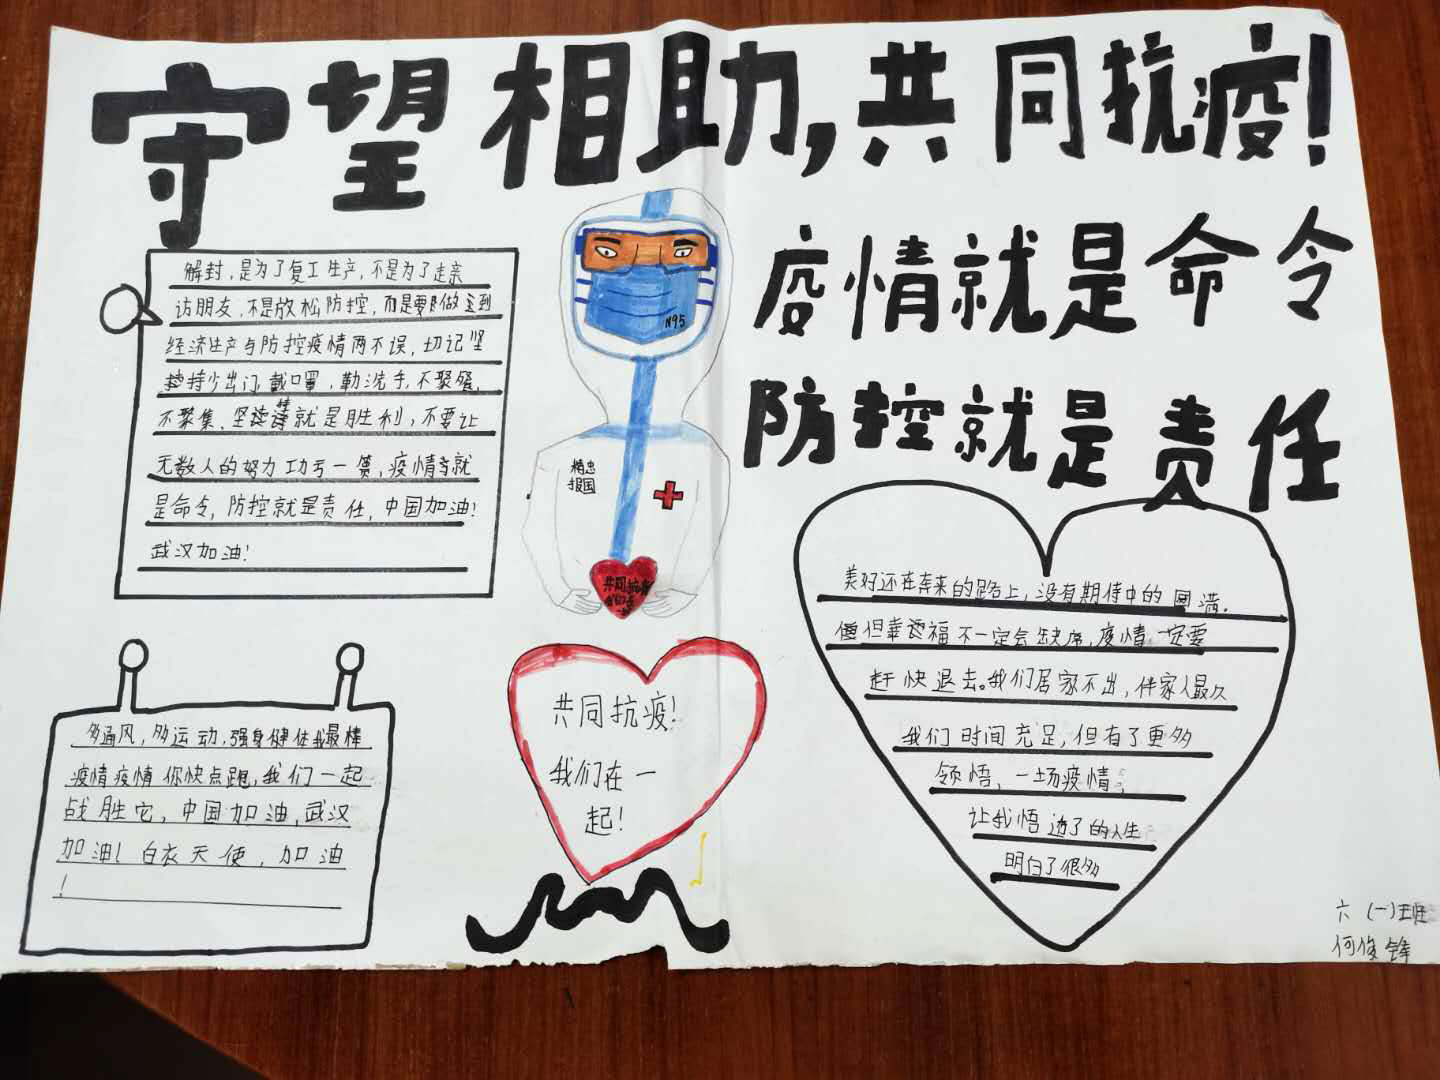 守望相助,共同抗疫!
疫情就是命令
防控就是责任
解封,是为了复工生产,不是为了走亲
访朋友,不是放松防控,而是要做到
经济生产与防控疫情两不误,切记坚
持少出门,戴口罩,勤洗手,不聚餐,
不聚集,坚持就是胜利,不要让
无数人的努力功亏一篑,疫情就
是命令,防控就是责任,中国加油!
武汉加油!
N95
精忠
报国
共同抗疫
我们在一
共同抗疫!
我们在一
起!
多通风,多运动,强身健体我最棒
疫情疫情你快点跑,我们一起
战胜它,中国加油,武汉
加油!白衣天使,加油
!
美好还在奔来的路上,没有期待中的圆满.
但幸福不一定会缺席,疫情一定要
赶快退去。我们居家不出,伴家人最久
我们时间充足,但有了更多
领悟,一场疫情,
让我悟透了的人生
明白了很多
六(一)班
何俊锋